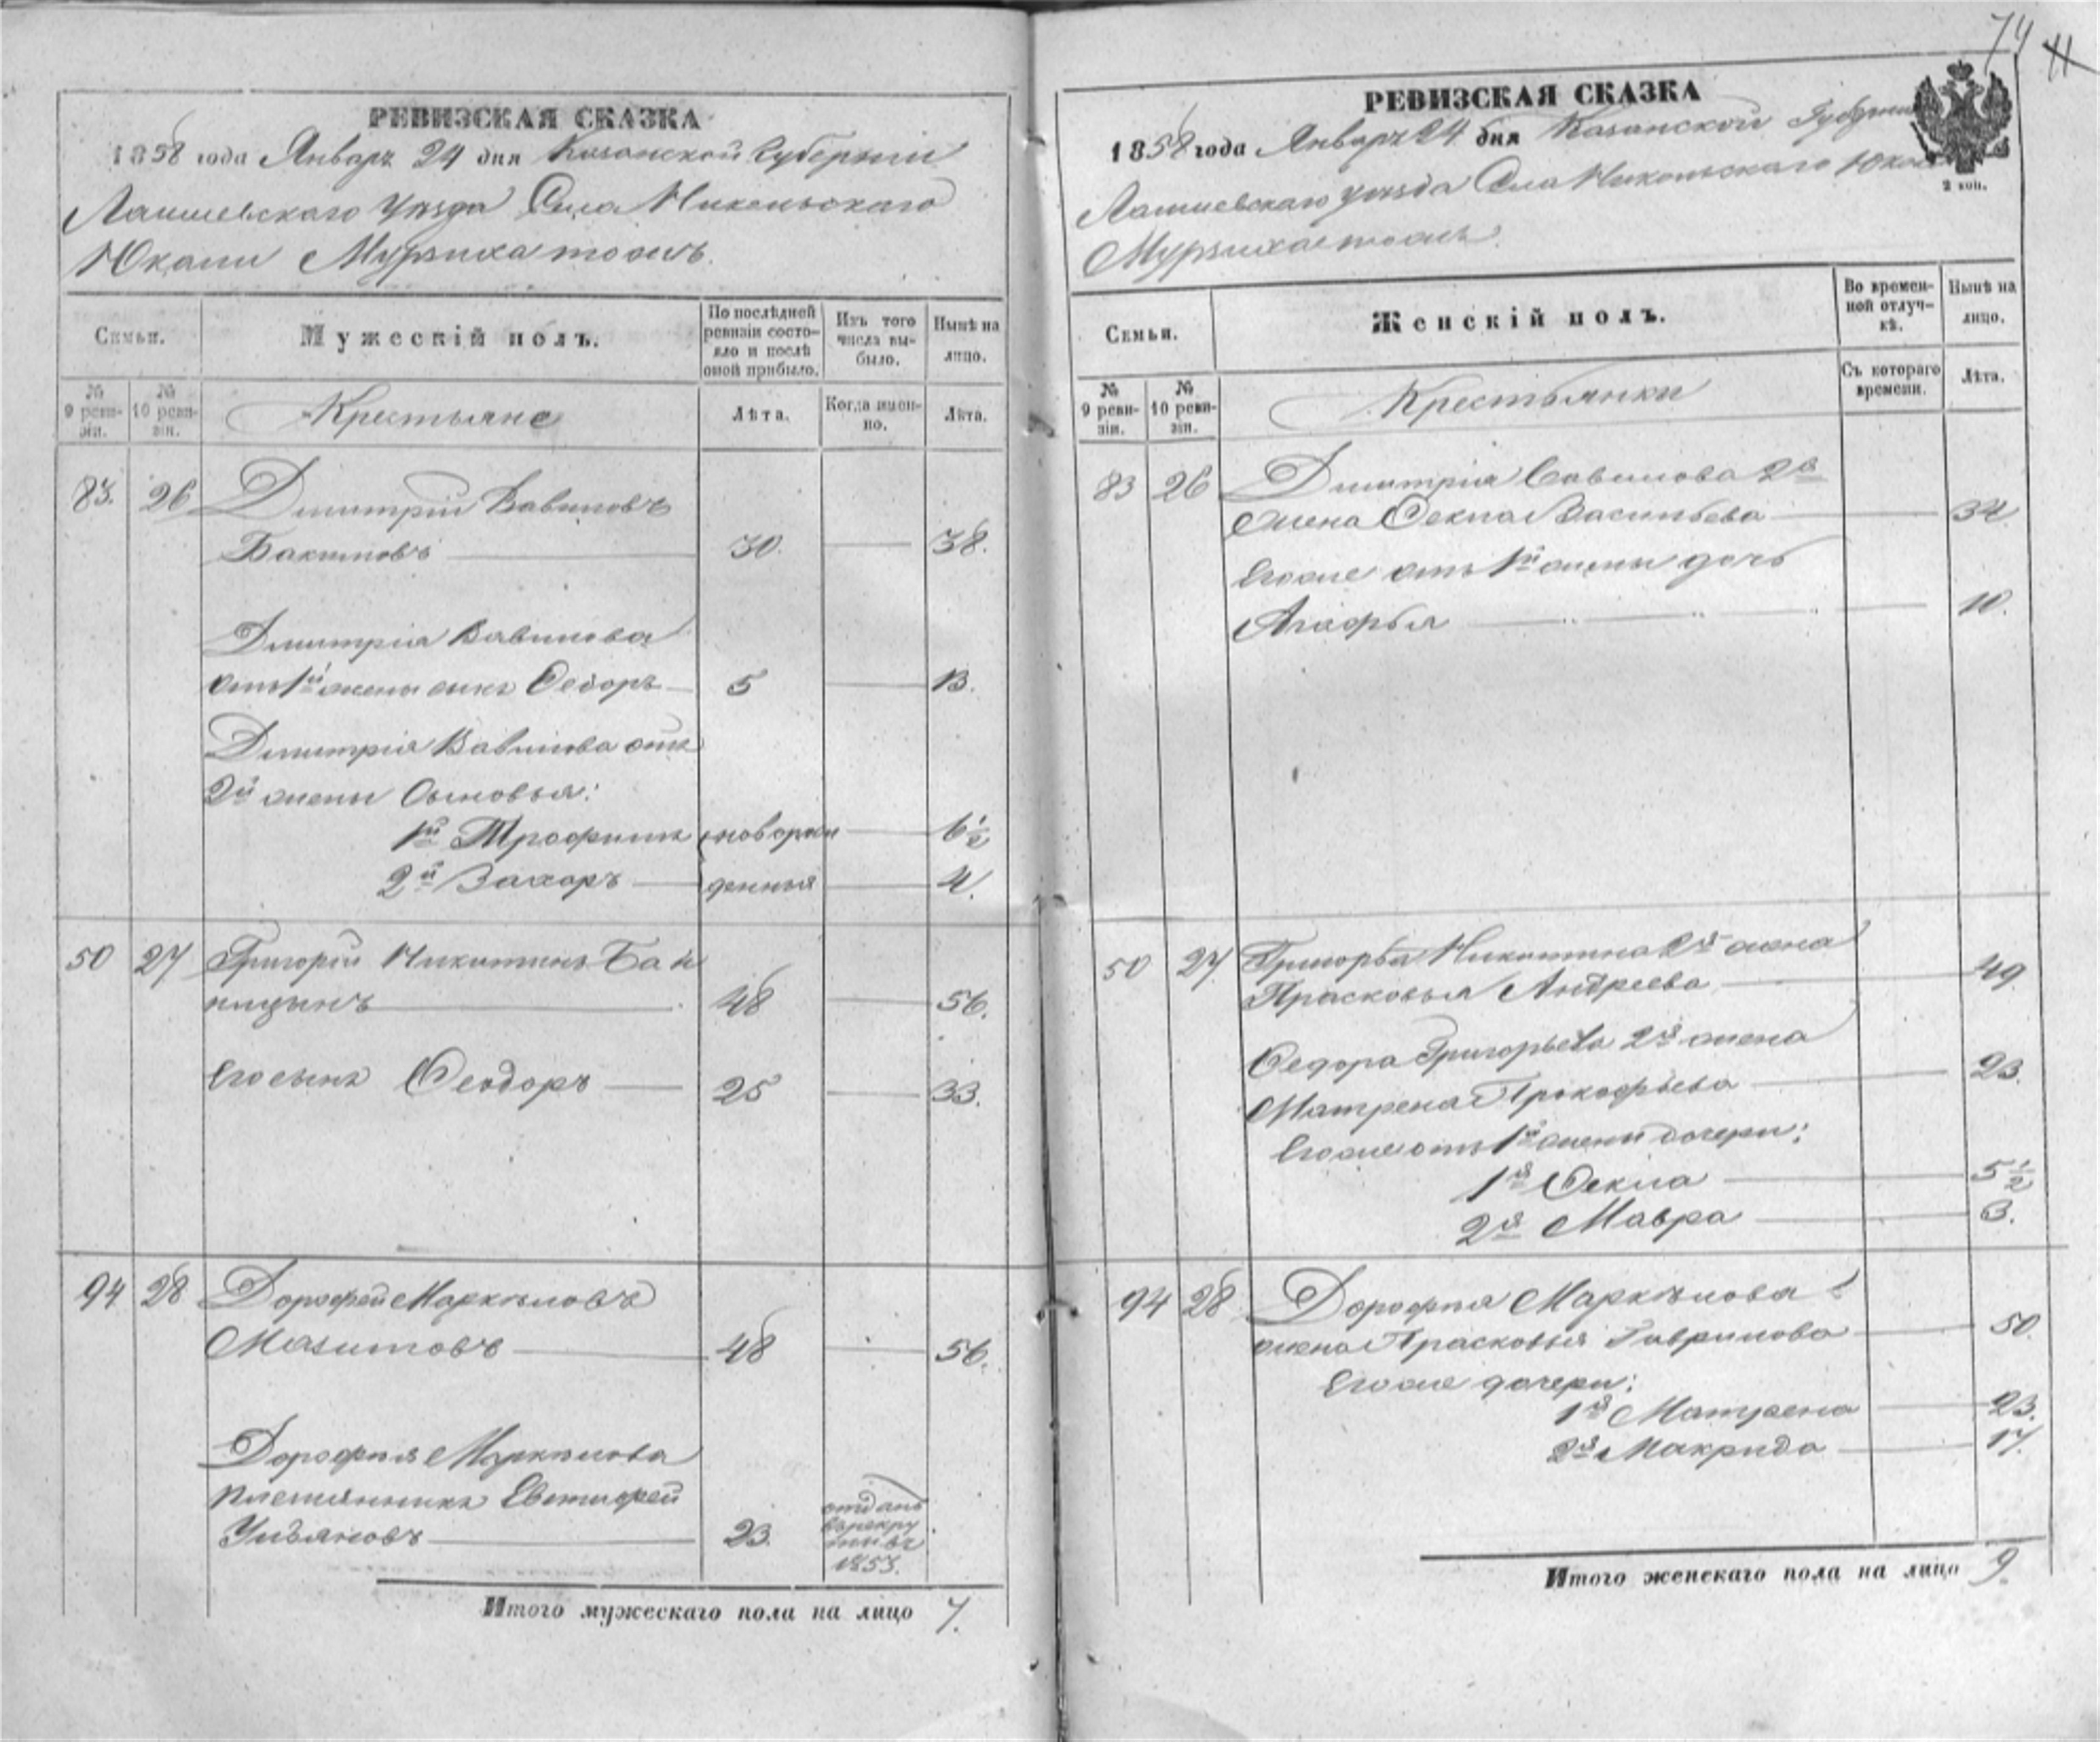 РЕВИЗСКАЯ СКАЗКА
1858 года Январь 24 дня Казанской Губерніи
Лаишевскаго Уѣзда Села Никольскаго
Юкали Мурзиха тожъ.
Семьи.
Мужескій полъ.
По послѣдней ревизіи состояло и послѣ оной прибыло.
Изъ того числа выбыло.
Нынѣ на лицо.
№ 9 ревизіи.
№ 10 ревизіи.
Крестьяне
Лѣта.
Когда именно.
Лѣта.
83. 26 Дмитрій Вавиловъ
Бакимовъ 30. 38.
Дмитрія Вавилова
отъ 1й жены сынъ Ѳедоръ 5 13.
Дмитрія Вавилова отъ
2й жены Сыновья:
1й Трофимъ новорож 6 1/2
2й Захаръ денныя 4.
50 27 Григорій Никитинъ
48 56.
Его сынъ Ѳеодоръ 25 33.
94 28 Дорофей Маркѣловъ
Мазитовъ 48 56.
Дорофѣя Маркѣлова
племянникъ Евтифей
Ульяновъ 23. отданъ въ рекруты въ 1853.
Итого мужескаго пола на лицо 7.
74
11
РЕВИЗСКАЯ СКАЗКА
1858 года Январь 24 дня Казанской Губерніи
2 коп.
Лаишевскаго уѣзда Села Никольскаго
Мурзиха тожъ.
Семьи.
Женскій полъ.
Во временной отлучкѣ.
Нынѣ на лицо.
№ 9 ревизіи.
№ 10 ревизіи.
Крестьянки
Съ котораго времени.
Лѣта.
83 26 Дмитрія Вавилова 2я
жена Ѳекла Васильева 34
Его же отъ 1й жены дочь
Агафья 10.
50 27. Григорья Никитина 2я жена
Прасковья Андреева 49.
Ѳедора Григорьева 2я жена
Матрена Прокофьева 23.
Его же отъ 1й жены дочери:
1я Ѳекла 5 1/2
2я Мавра 3.
94 28 Дорофѣя Маркѣлова
жена Прасковья Гаврилова 50.
Его же дочери:
1я Матрена 23.
2я Макрида 17.
Итого женскаго пола на лицо 9.